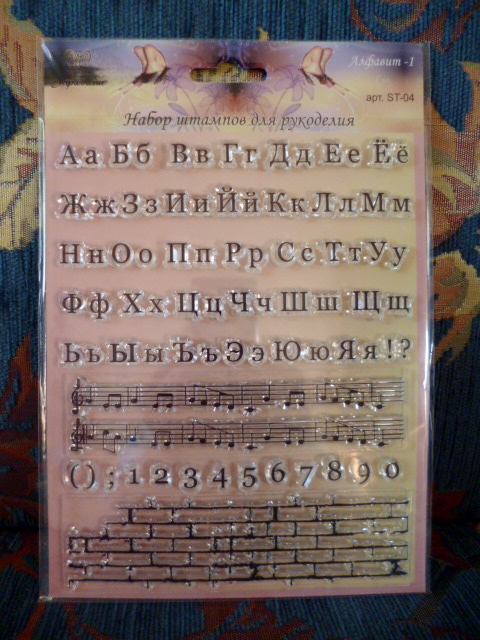 Алфавит -1
арт. ST-04
Набор штампов для рукоделия
Аа Бб Вв Гг Дд Ее Ёё
Жж Зз Ии Йй Кк Лл Мм
Нн Оо Пп Рр Сс Тт Уу
Фф Хх Цц Чч Шш Щщ
Ьь Ыы Ъъ Ээ Юю Яя ! ?
( ) ; 1 2 3 4 5 6 7 8 9 0